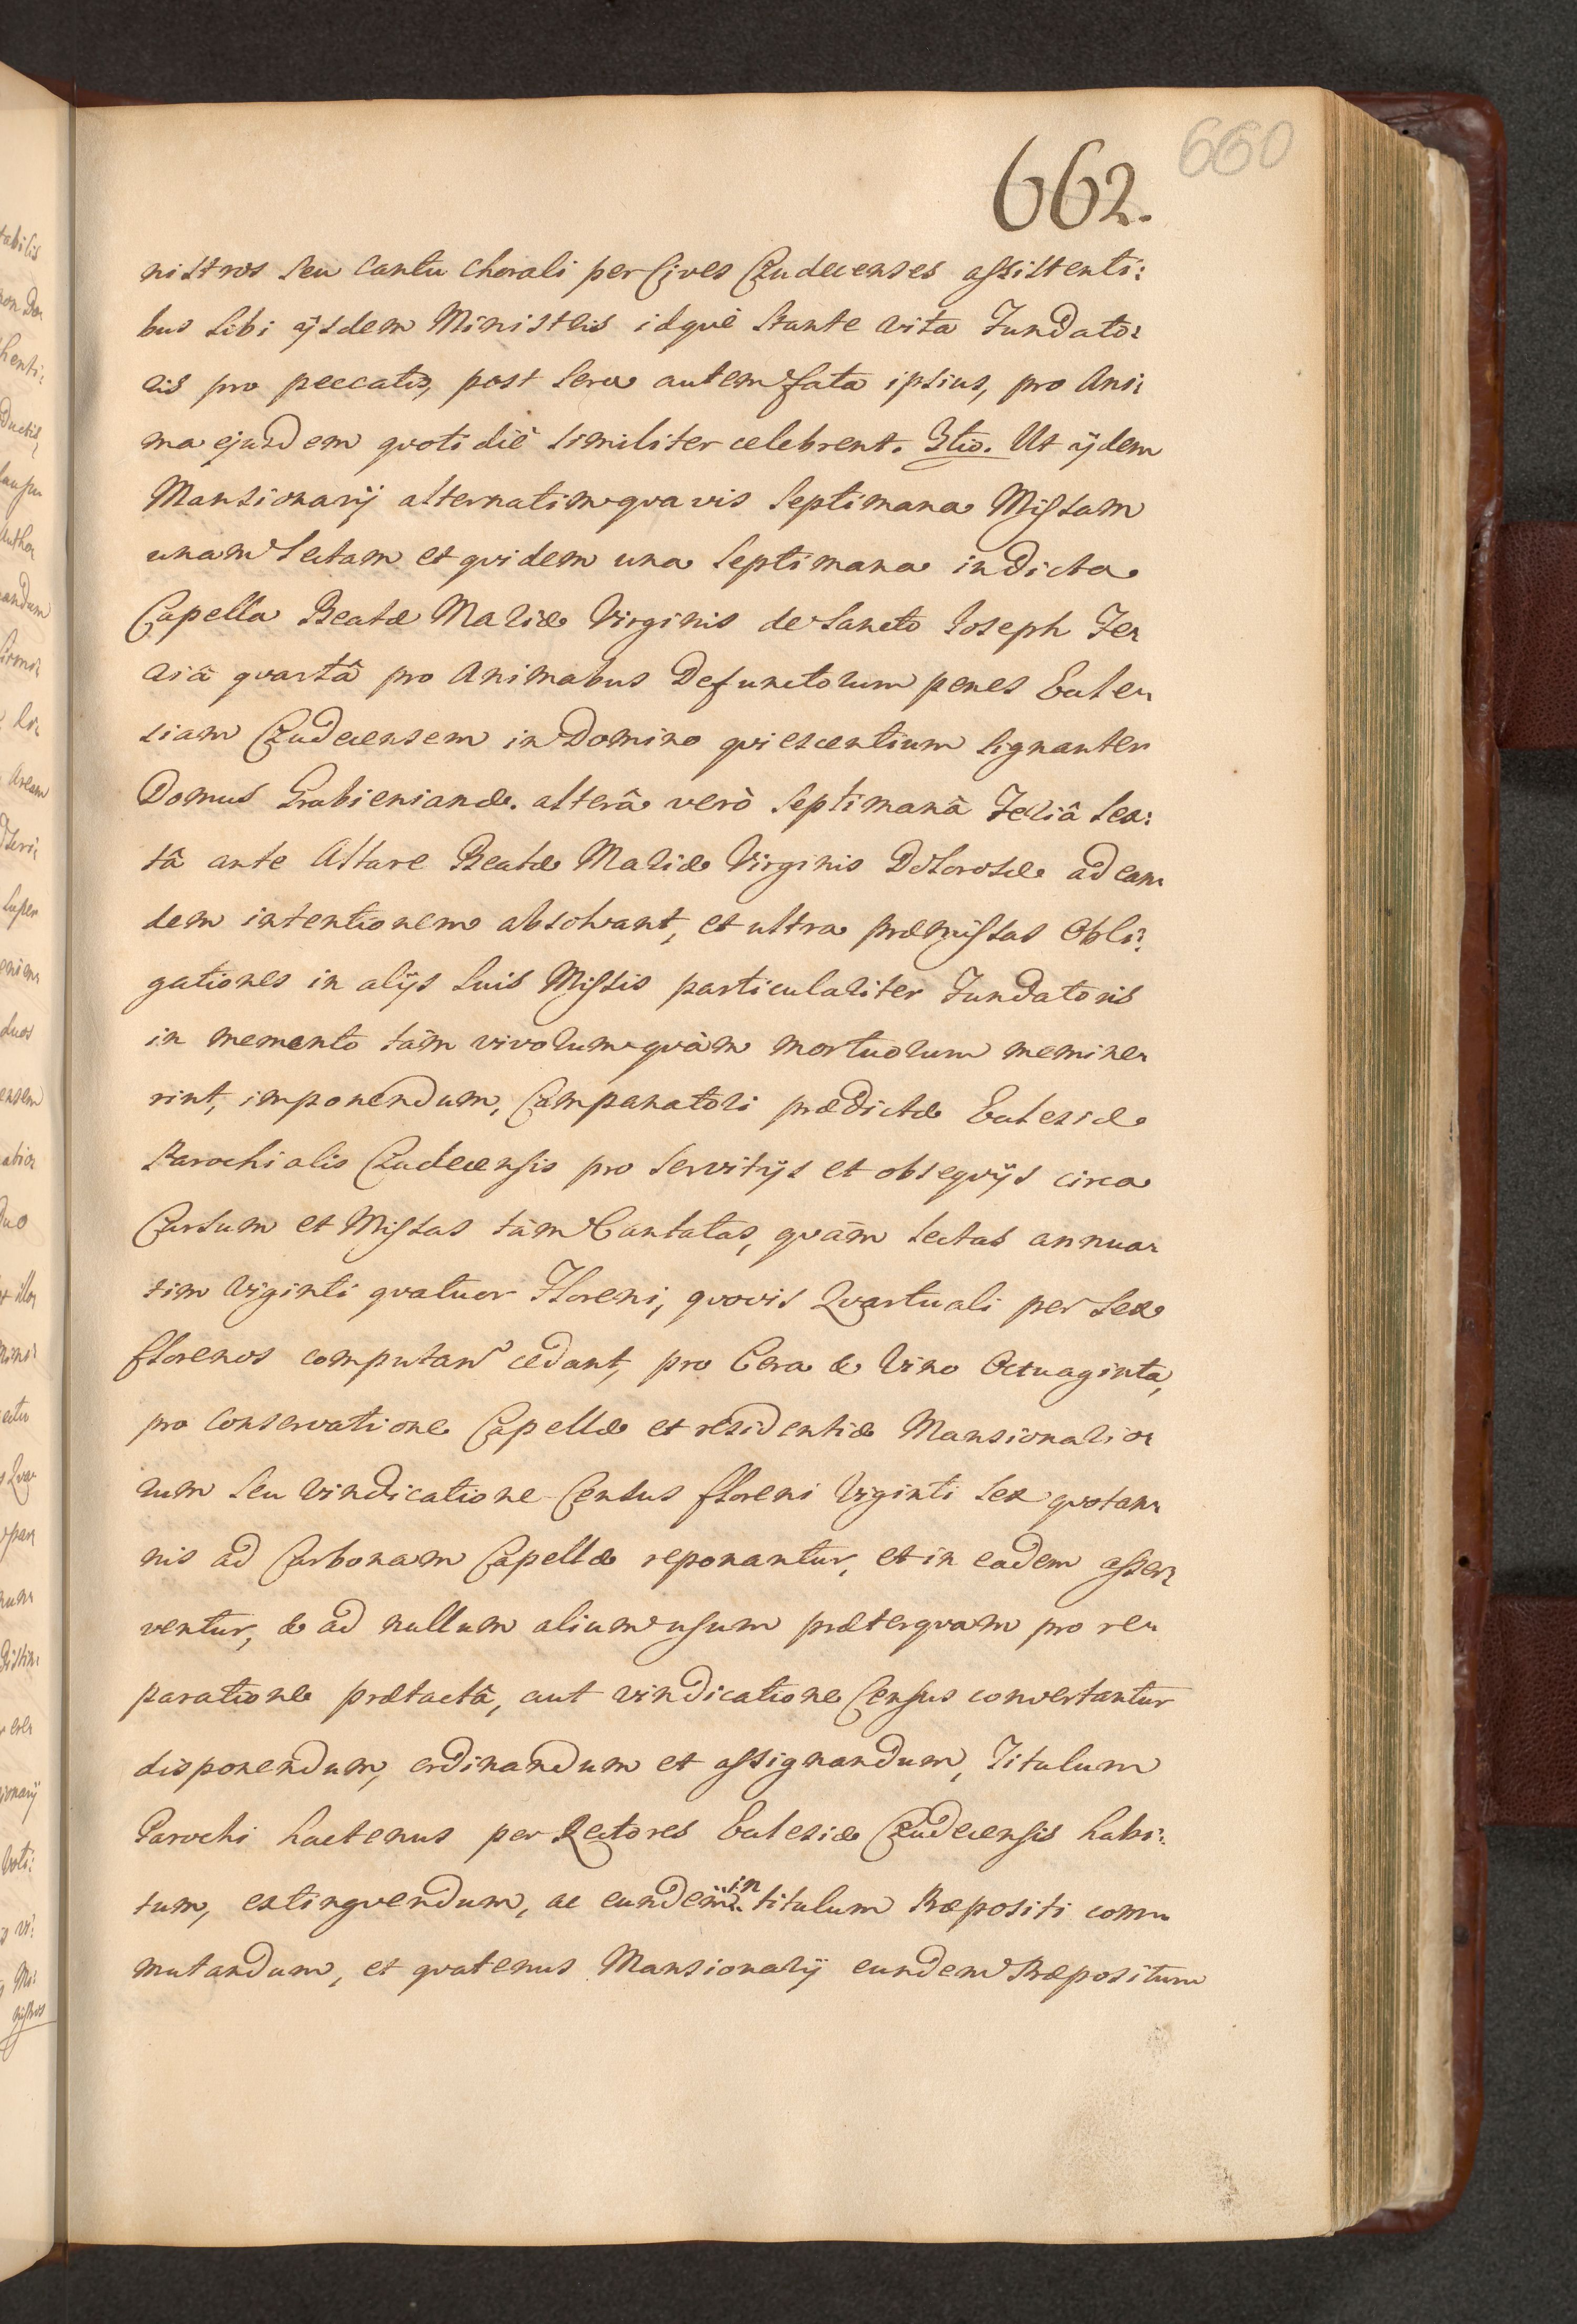 660
662.
nistros seu cantu chorali per Cives Czudecenses assistenti:
bus sibi ijsdem Ministris idquè stante vita Fundato:
ris pro peccatis, post sera autem fata ipsius, pro Ani:
ma ejusdem quotidiè similiter celebrent. 3tio. Ut ijdem
Mansionarij alternatim quavis septimana Missam
unam lectam et quidem una septimana in dicta
Capella Beatæ Mariæ Virginis de Sancto Joseph Fe:
riâ quartâ pro Animabus Defunctorum penes Eccle:
siam Czudecensem in Domino quiescentium signanter
Domus Grabienianæ. alterâ verò septimanâ Feriâ sex:
tâ ante Altare Beatæ Mariæ Virginis Dolorosæ ad ean:
dem intentionem absolvant, et ultra præmissas Obli:
gationes in alijs suis Missis particulariter Fundatoris
in memento tàm vivorum quàm mortuorum memine:
rint, imponendum, Campanatori prædictæ Ecclesiæ
Parochialis Czudecensis pro servitijs et obsequijs circa
Cursum et Missas tàm Cantatas, quàm lectas annua:
tim viginti quatuor Floreni, quovis Quartuali per sex
florenos computan cedant, pro Cera & Vino Octuaginta,
pro conservatione Capellæ et residentiæ Mansionario:
rum seu vindicatione Census floreni viginti sex quotan:
nis ad Carbonam Capellæ reponantur, et in eadem asser:
ventur, & ad nullum alium usum præterquam pro re:
paratione prætactâ, aut vindicatione Census convertantur
disponendum, ordinandum et assignandum, Titulum
Parochi hactenus per Rectores Ecclesiæ Czudecensis habi:
tum, extinguendum, ac eundem in titulum Præpositi com:
mutandum, et quatenus Mansionarij eundem Præpositum